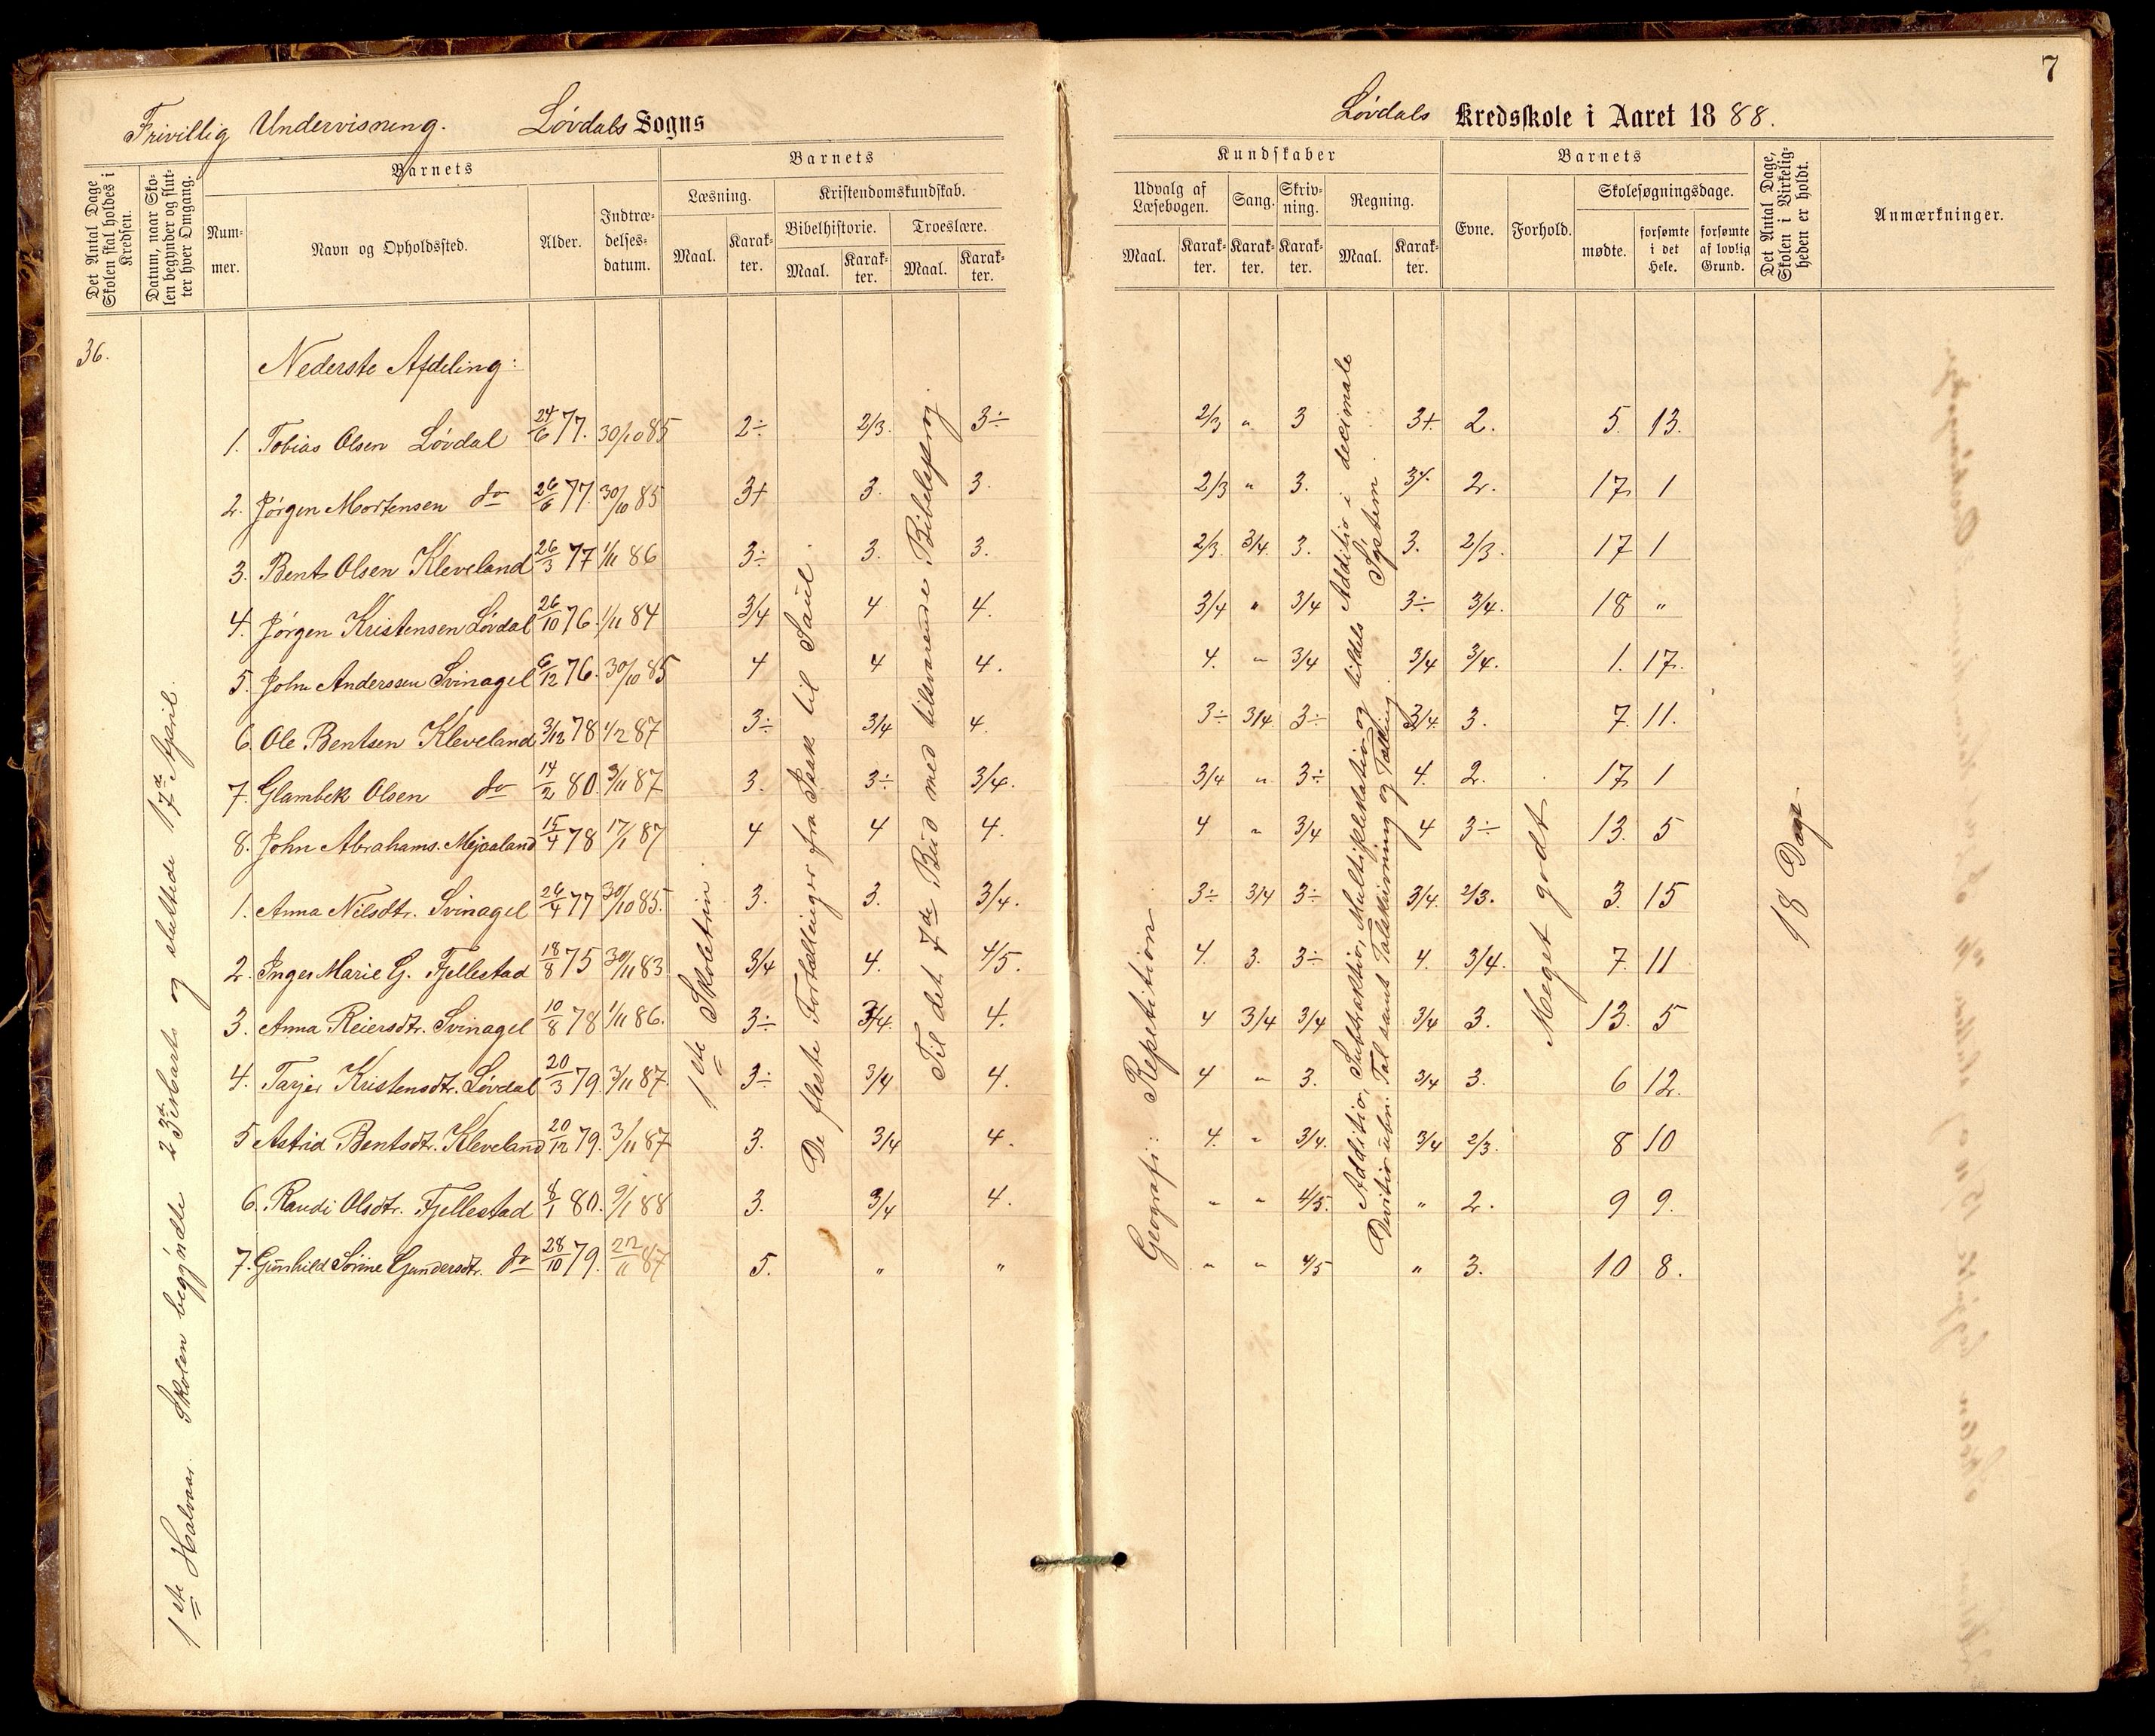 7
Frivillig Undervisning. Løvdals Sogns
Løvdals Kredsskole i Aaret 1888.
Det Antal Dage Skolen skal holdes i Kredsen.
Datum, naar Skolen begynder og slutter hver Omgang.
Barnets
Nummer.
Navn og Opholdssted.
Alder.
Indtrædelsesdatum.
Barnets
Læsning.
Maal. Karakter.
Kristendomskundskab.
Bibelhistorie. Troeslære.
Maal. Karakter. Maal. Karakter.
Kundskaber
Udvalg af Læsebogen. Sang. Skrivning. Regning.
Maal. Karakter. Karakter. Karakter. Maal. Karakter.
Barnets
Evne. Forhold. Skolesøgningsdage.
mødte. forsømte i det Hele. forsømte af lovlig Grund.
Det Antal Dage, Skolen i Virkeligheden er holdt.
Anmærkninger.
36.
1ste Halvaar. Skolen begyndte 23de Marts og sluttede 17de April.
Nederste Afdeling:
1. Tobias Olsen Løvdal 24/6 77. 30/10 85 2÷ 2/3. 3÷ 2/3 " 3 3+ 2. 5. 13.
2. Jørgen Mortensen do 26/6 77. 30/10 85 3+ 3. 3. 2/3 " 3. 3÷ 2. 17. 1
3. Bent Olsen Kleveland 26/3 77 1/11 86 3÷ 3. 3. 2/3. 3/4. 3. 3. 2/3. 17 1
4. Jørgen Kristensen Løvdal 26/10 76. 1/11 84 3/4 4 4. 3/4 " 3/4 3÷ 3/4. 18 "
5. John Anderssen Svinagel 6/12 76. 30/10 85 4 4 4. 4. " 3/4 3/4 3/4. 1. 17.
6. Ole Bentsen Kleveland 3/12 78 1/2 87 3÷ 3/4 4. 3÷ 3/4. 3÷ 3/4. 3. 7. 11.
7. Glambek Olsen do 14/2 80. 3/11 87 3. 3÷ 3/4. 3/4 " 3÷ 4. 2. 17. 1
8. John Abrahams. Mjaaland 15/4 78 17/1 87 4 4 4. 4 " 3/4 4 3÷ 13. 5
1. Anna Nilsdtr. Svinagel 26/4 77 30/10 85. 3. 3. 3/4. 3÷ 3/4 3÷ 3/4. 2/3. 3. 15
2. Inger Marie G. Fjellestad 18/8 75 30/11 83 3/4 4. 4/5. 4. 3. 3÷ 4. 3/4. 7. 11
3. Anna Reiersdtr. Svinagel 10/8 78 1/11 86. 3÷ 3/4. 4. 4 3/4 3/4 3/4 3. 13. 5
4. Tarjer Kristensdtr. Løvdal 20/3 79. 3/11 87. 3÷ 3/4 4. 4 " 3. 3/4 3. 6 12.
5 Astrid Bentsdtr. Kleveland 20/12 79. 3/11 87 3. 3/4 4. 4. " 3/4. 3/4 2/3. 8 10
6. Randi Olsdtr. Fjellestad 8/1 80. 9/1 88 3. 3/4 4. " " 4/5. " 2. 9 9.
7. Gunhild Sørine Gundersdtr. do 28/10 79. 22/11 87 5. " " " " 4/5 " 3. 10 8.
1ste Skoletrin.
De fleste Fortællinger fra Isak til Saul.
Til det 7de Bud med tilsvarende Bibelsprog.
Geografi: Repetition.
Additio, Subtraktio, Multiplikatio og tildels Additio i decimale System.
Divitio ubn. Tal samt Talskrivning og Tælling.
Meget godt
18 Dage